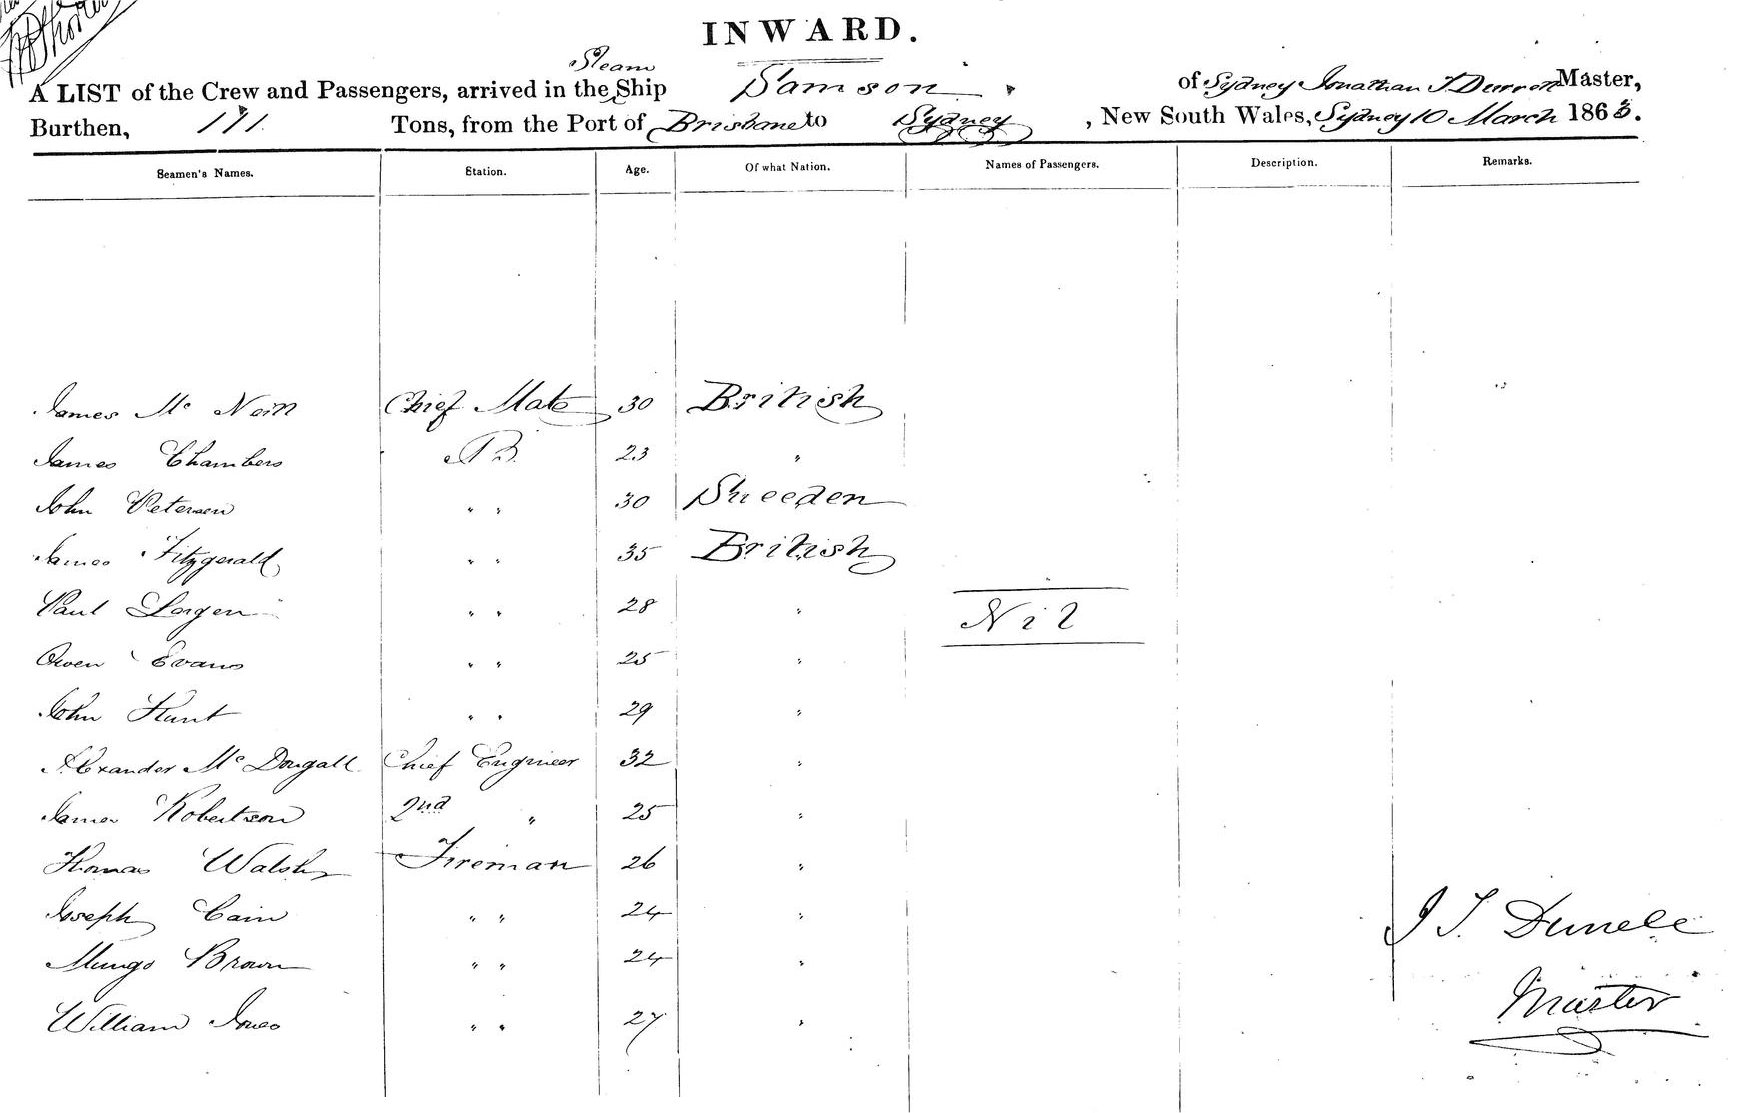 INWARD.
Steam
A LIST of the Crew and Passengers, arrived in the Ship Samson of Sydney Jonathan T Master,
Burthen, 171. Tons, from the Port of Brisbane to Sydney, New South Wales, Sydney 10 March 1863.
Seamen's Names. Station. Age. Of what Nation. Names of Passengers. Description. Remarks.
James Mc Neill Chief Mate 30 British
James Chambers AB 23 "
John Petersen " " 30 Sweeden
James Fitzgerald " " 35 British
Paul " " 28 "
Nil
Owen Evans " " 25 "
John Hunt " " 29 "
Alexander McDougall Chief Engineer 32 "
James Robertson 2nd " 25 "
Thomas Walsh Fireman 26 "
Joseph Cain " " 24 "
J T
Mungo Brown " " 24 "
Master
William Jones " " 27 "